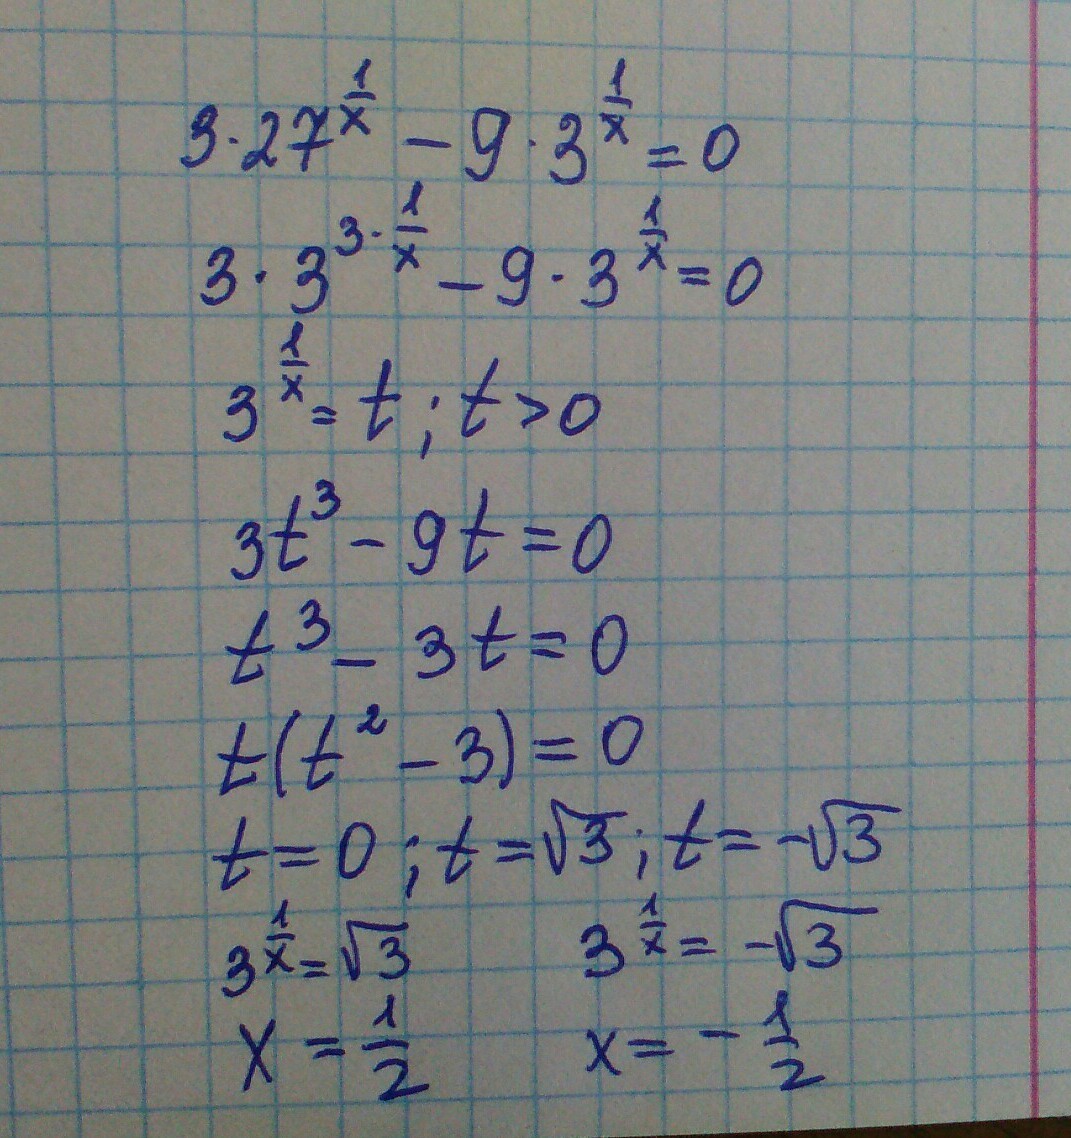 3·27^{\frac{1}{x}} - 9·3^{\frac{1}{x}} = 0
3·3^{3·\frac{1}{x}} - 9·3^{\frac{1}{x}} = 0
3^{\frac{1}{x}} = t; t > 0
3t^3 - 9t = 0
t^3 - 3t = 0
t(t^2 - 3) = 0
t = 0; t = √3; t = -√3
3^{\frac{1}{x}} = √3 3^{\frac{1}{x}} = -√3
x = \frac{1}{2} x = -\frac{1}{2}